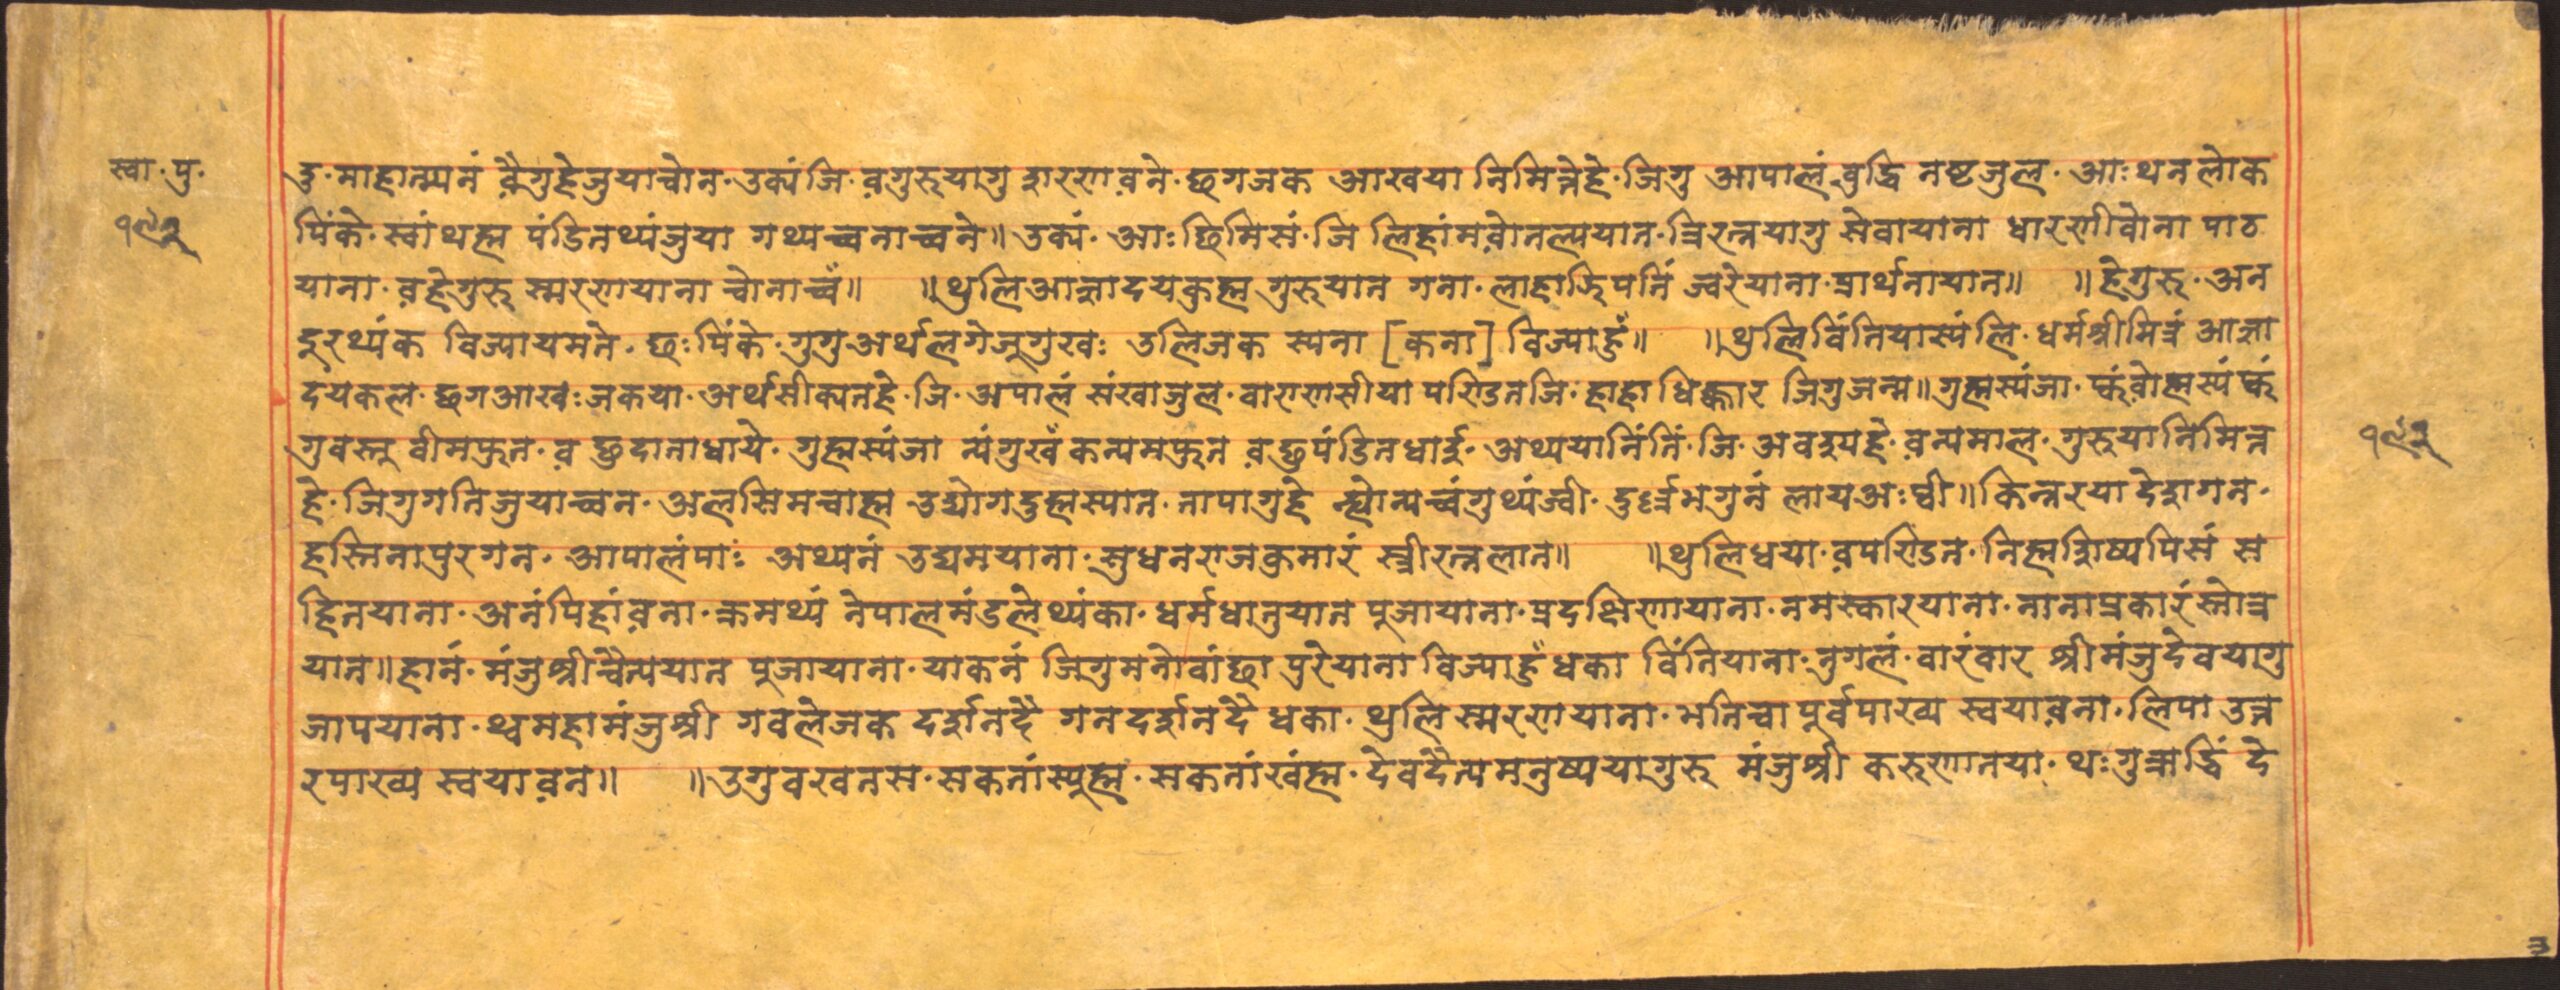 स्वा. पु.
१९२
दु. माहात्म्यनं वैगुहेजुयाचोन. उक्यं जि. व गुरूयागु शरण वने. छगजक आखया निमित्तेहे. जिगु आपालं वुद्धि नष्टजुल. आः थन लोक
पिंके. स्वां थह्म पंडितथ्यंजुया गथ्यच्वनाच्वने॥ उक्यं. आः छिमिसं. जि लिहांमवोनल्ययात. त्रिरत्नयागु सेवायाना धारणीवोना पाठ
याना. वहेगुरु स्मरणयाना चोनाच्वँ॥ ॥थुलिआज्ञादयकुह्म गुरूयात गना. लाहाज्जिपनिं ज्वरेयाना. प्रार्थनायात॥ ॥हेगुरु. अन
दुरथ्यंक विज्यायमते. छःपिंके. गुगुअर्थलगेजूगुखः उलिजक स्यना [कना] विज्याहुँ॥ ॥थुलिविंतियास्यंलि. धर्मश्रीमित्रं आज्ञा
दयकल. छगआखःजकया. अर्थसीक्यनहे. जि. अपालं संखाजुल. वाराणसीया पण्डितजि. हाहा धिक्कार जिगुजन्म॥ गुह्मस्यंजा. फ्कंवोह्मस्यंफ्कं
गुवस्तु वीमफुत. व छुदानाधाये. गुह्मस्यंजा न्यंगुखँ कन्यमफुत व छुपंडितधाई. अथ्ययानिंतिं. जि. अवश्यहे. वन्यमाल. गुरुयानिमित्त
हे. जिगुगतिजुयाच्वन. अलसिमचाह्म उद्योगदुह्मस्यात. तापागुहे न्ह्योन्यच्वंगुथ्यंज्वी. दुर्ल्लभगुनं लायअःप्वी॥ किन्नरया देशगन.
हस्तिनापुरगन. आपालंपाः अथ्यनं उद्यमयाना. सुधनराजकुमारं स्त्रीरत्नलात॥ ॥थुलिधया. वपण्डित. निह्मशिष्यपिसं स
हितयाना. अनंपिहांवना. क्रमथ्यं नेपालमंडलेथ्यंका. धर्मधातुयात पुजायाना. प्रदक्षिणायाना. नमस्कारयाना. नानाप्रकारंस्तोत्र
यात॥ हानं. मंजुश्रीचैत्ययात पुजायाना. याकनं जिगुमनोवांछा पुरेयाना विज्याहुँधका विंतियाना. नुगलं. वारंवार श्रीमंजुदेवयागु
जापयाना. थ्वमहामंजुश्री गवलेजक दर्शनदै गनदर्शनदै धका. थुलि स्मरणयाना. भतिचा पूर्वपाख्य स्वयावना. लिपा उत्त
रपाख्य स्वयावन॥ ॥उगुवखतस. सकतांस्यूह्म. सकतांखंह्म. देवदैत्यमनुष्ययागुरु मंजुश्री करुणातया. थःगुऋद्धिं दे
१९२